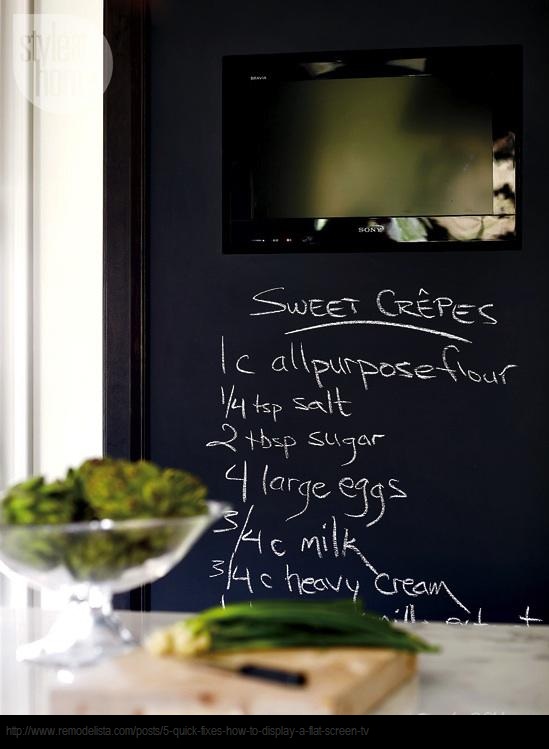 style at home
BRAVIA
SONY
SWEET CRÊPES
1 c allpurpose flour
1/4 tsp salt
2 tbsp sugar
4 large eggs
3/4 c milk
3/4 c heavy cream
http://www.remodelista.com/posts/5-quick-fixes-how-to-display-a-flat-screen-tv